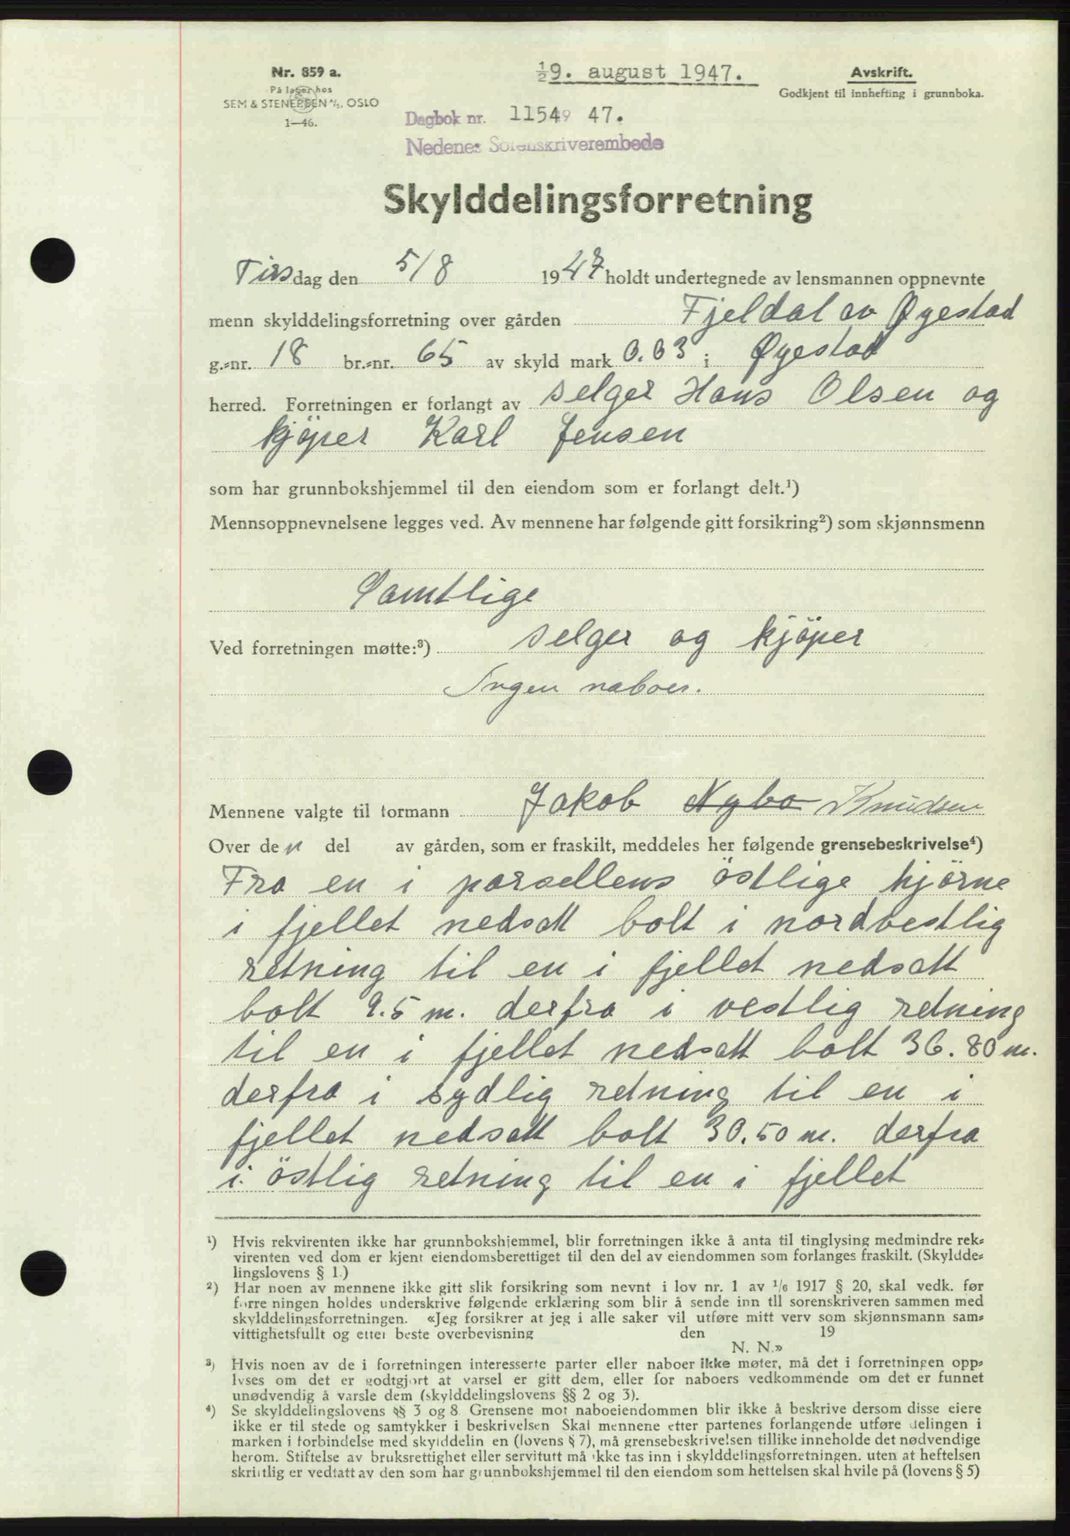 Nr. 859 a.
På lager hos
SEM & STENERSEN A/S, OSLO
1—46.
½9. august 1947.
Avskrift.
Godkjent til innhefting i grunnboka.
Dagbok nr. 1154⁹ 47.
Nedenes Sorenskriverembede
Skylddelingsforretning
Tirsdag den 5/8 1947 holdt undertegnede av lensmannen oppnevnte
menn skylddelingsforretning over gården Fjeldal av Øyestad
g.-nr. 18 br.-nr. 65 av skyld mark 0.03 i Øyestad
herred. Forretningen er forlangt av selger Hans Olsen og
kjöper Karl Jensen
som har grunnbokshjemmel til den eiendom som er forlangt delt.¹)
Mennsoppnevnelsene legges ved. Av mennene har følgende gitt forsikring²) som skjønnsmenn
Samtlige
Ved forretningen møtte:³) selger og kjöper
Ingen naboer.
Mennene valgte til formann Jakob Nybo Knudsen
Over den del av gården, som er fraskilt, meddeles her følgende grensebeskrivelse⁴)
Fra en i parsellens östlige hjörne
i fjellet nedsatt bolt i nordvestlig
retning til en i fjellet nedsatt
bolt 9.5 m. derfra i vestlig retning
til en i fjellet nedsatt bolt 36.80 m.
derfra i sydlig retning til en i
fjellet nedsatt bolt 30.50 m. derfra
i östlig retning til en i fjellet
¹) Hvis rekvirenten ikke har grunnbokshjemmel, blir forretningen ikke å anta til tinglysing medmindre rek-
virenten ved dom er kjent eiendomsberettiget til den del av eiendommen som forlanges fraskilt. (Skyldde-
lingslovens § 1.)
²) Har noen av mennene ikke gitt slik forsikring som nevnt i lov nr. 1 av ¹/₆ 1917 § 20, skal vedk. før
forretningen holdes underskrive følgende erklæring som blir å sende inn til sorenskriveren sammen med
skylddelingsforretningen. «Jeg forsikrer at jeg i alle saker vil utføre mitt verv som skjønnsmann sam-
vittighetsfullt og etter beste overbevisning den 19
N. N.»
³) Hvis noen av de i forretningen interesserte parter eller naboer ikke møter, må det i forretningen opp-
lyses om det er godtgjort at varsel er gitt dem, eller for naboers vedkommende om det er funnet
unødvendig å varsle dem (skylddelingslovens §§ 2 og 3).
⁴) Se skylddelingslovens §§ 3 og 8. Grensene mot naboeiendommen blir ikke å beskrive dersom disse eiere
ikke er til stede og samtykker i beskrivelsen Skal mennene etter partenes forlangende utføre delingen i
marken i forbindelse med skylddelingen (lovens § 7), må grensebeskrivelsen tillike inneholde det nødvendige
herom. Stiftelse av bruksrettighet eller servitutt må ikke tas inn i skylddelingsforretningen. uten at heftelsen
skriftlig er vedtatt av den som har grunnbokshjemmel til den eiendom som heftelsen skal hvile på (lovens § 5)